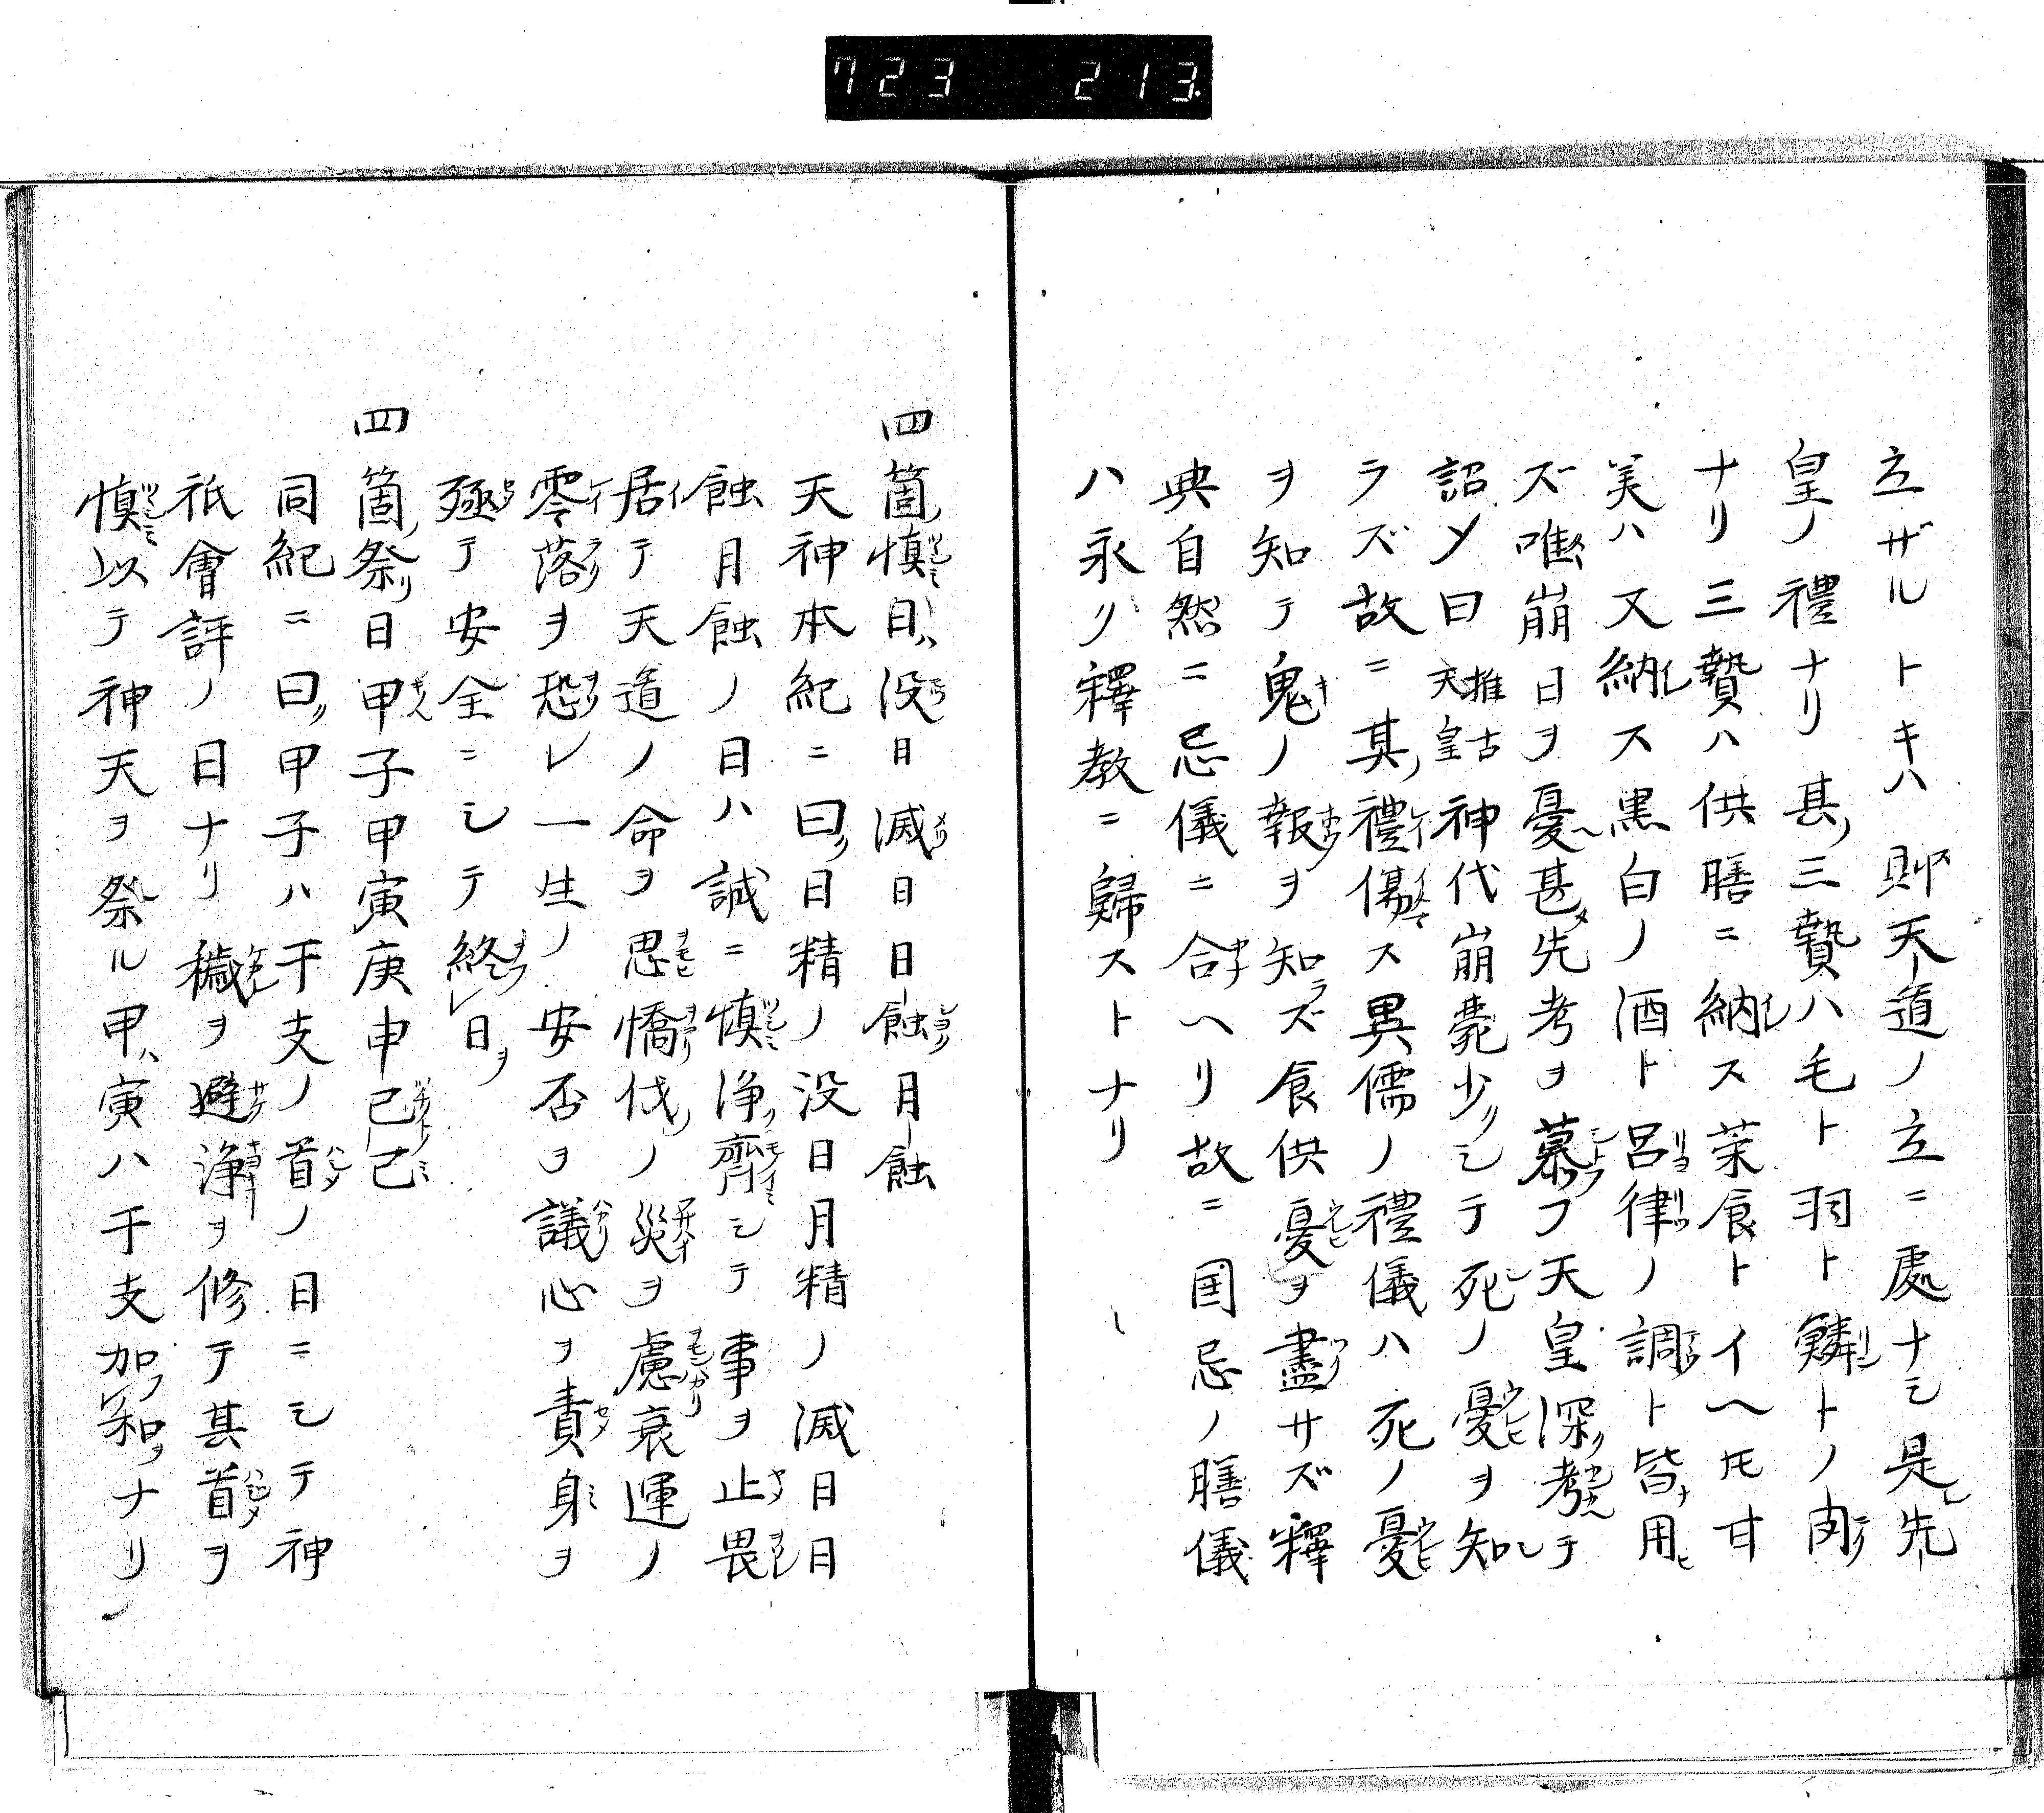 723 213
立ザルトキハ則天道ノ立ニ處ナシ是先
皇ノ禮ナリ其三贄ハ毛ト羽ト鱗トノ肉
ナリ三贄ハ供膳ニ納ス茉食トイヘㇳモ甘
美ハ又納ス黒白ノ酒ト呂律ノ調ト皆用
ズ唯崩日ヲ憂甚先考ヲ慕フ天皇深考テ
詔メ曰推古天皇神代崩薨少シテ死ノ憂ヲ知
ラズ故ニ其禮傷ス異儒ノ禮儀ハ死ノ憂
ヲ知テ鬼ノ報ヲ知ズ食供憂ヲ盡サズ釋
典自然ニ忌儀ニ合ヘリ故ニ国忌ノ膳儀
ハ永ク釋教ニ歸ストナリ
四箇慎日没日滅日日蝕月蝕
天神本紀ニ曰日精ノ没日月精ノ滅日日
蝕月蝕ノ日ハ誠ニ慎浄齊シテ事ヲ止畏
居テ天道ノ命ヲ思憍伐ノ災ヲ慮衰運ノ
零落ヲ恐レ一生ノ安否ヲ議心ヲ責身ヲ
極テ安全ニシテ終レ日ヲ
四箇祭日甲子甲寅庚申己巳
同紀ニ曰甲子ハ干支ノ首ノ日ニシテ神
祇會評ノ日ナリ穢ヲ避浄ヲ修テ其首ヲ
慎以テ神天ヲ祭ル甲寅ハ干支加和ナリ